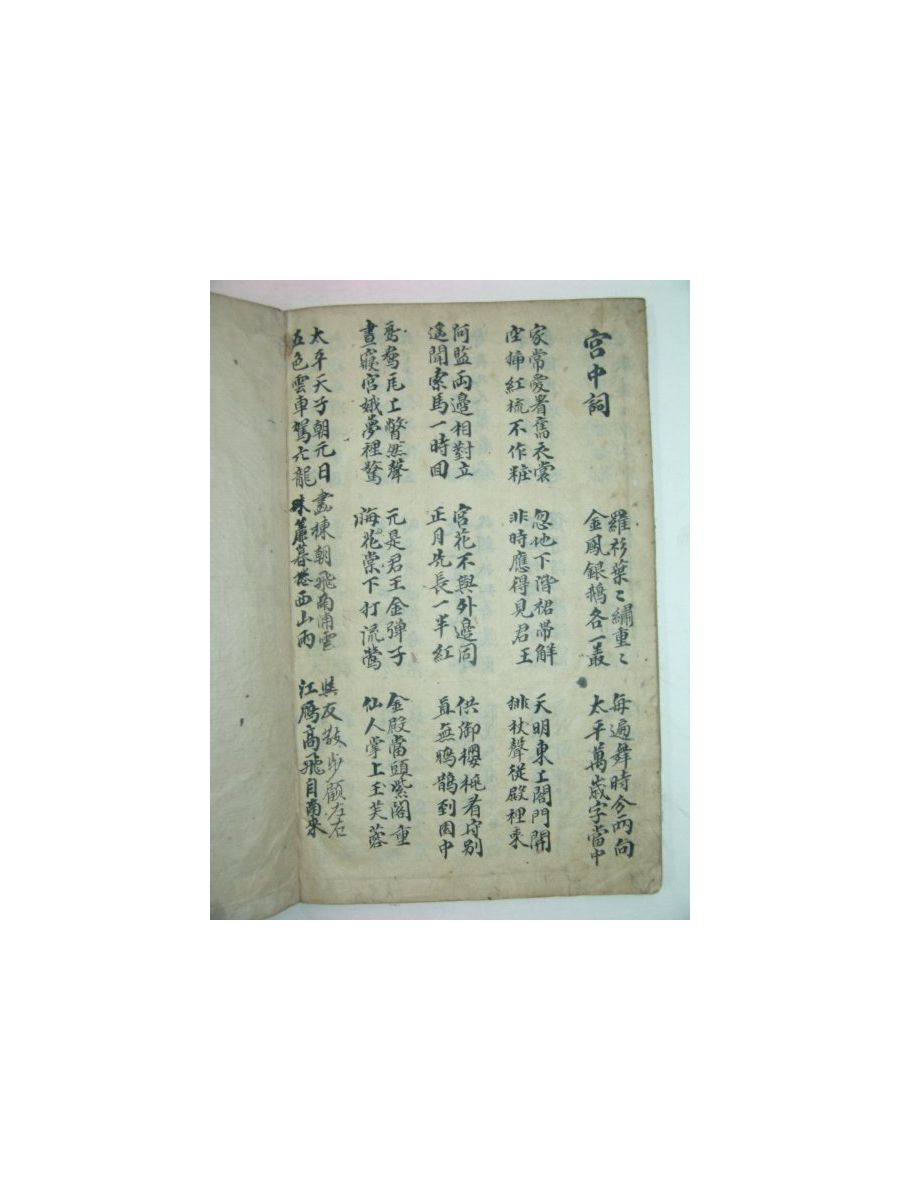 宮中詞
羅衫葉〻繡重〻
金鳳銀鵝各一叢
每遍舞時分両向
太平萬歲字當中
家常愛著舊衣裳
空揷紅梳不作粧
忽地下階裙帶解
非時應得見君王
天明東上閣門開
排杖聲從殿裡來
阿監両邊相對立
遙聞索馬一時回
宮花不與外邊同
正月先長一半紅
供御櫻桃看守別
直無鴉鵲到園中
鴛鴦瓦上瞥然聲
晝寢宮娥夢裡驚
元是君王金彈子
海花棠下打流鶯
金殿當頭紫閣重
仙人掌上玉芙蓉
太平天子朝元日
五色雲車駕六龍
畫棟朝飛南浦雲
珠簾暮捲西山雨
與友散步顧左右
江鴈高飛自南來